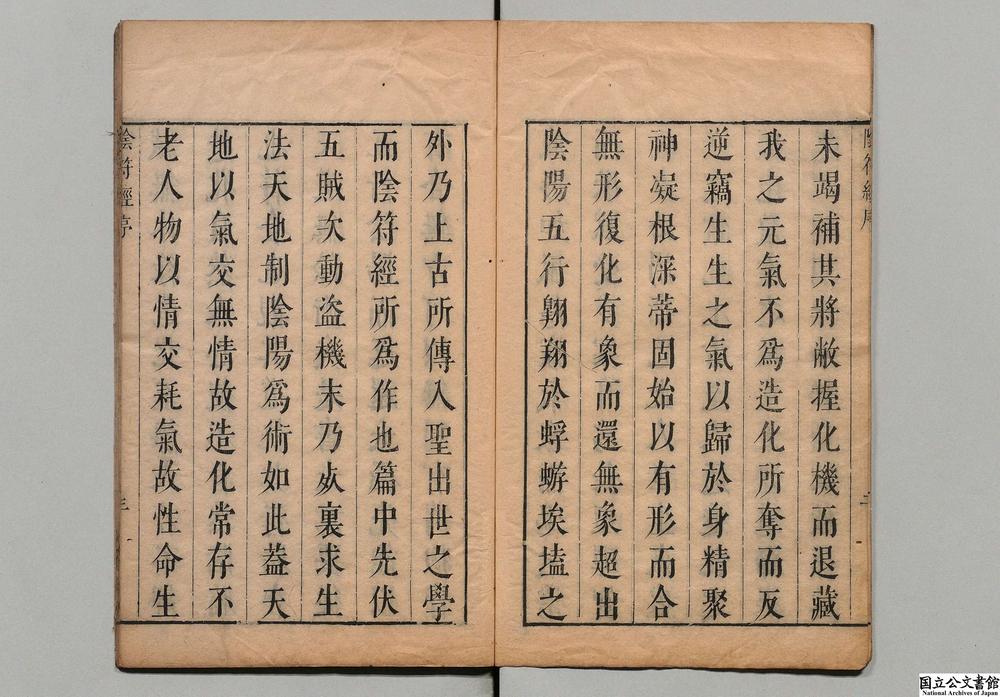 陰符經序
二
未竭補其將敝握化機而退藏
我之元氣不爲造化所奪而反
逆竊生生之氣以歸於身精聚
神凝根深蒂固始以有形而合
無形復化有象而還無象超出
陰陽五行翺翔於蜉蝣埃壒之
外乃上古所傳入聖出世之學
而陰符經所爲作也篇中先伏
五賊次動盜機末乃夾裏求生
法天地制陰陽爲術如此葢天
地以氣交無情故造化常存不
老人物以情交耗氣故性命生
陰符經序
三
国立公文書館
National Archives of Japan